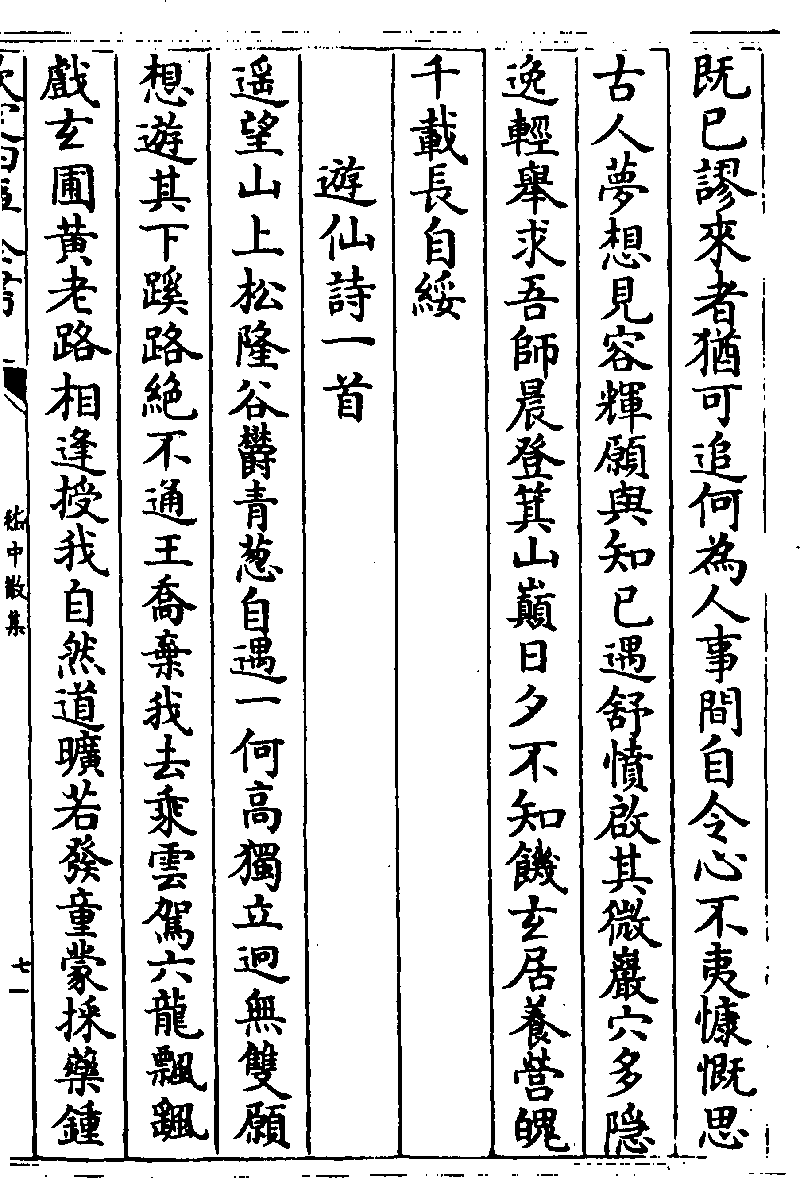 既已謬來者猶可追何為人事間自令心不夷慷慨思
古人夢想見容輝願與知已遇舒憤啟其微巖穴多隐
逸輕舉求吾師晨登箕山巔日夕不知饑玄居養營魄
千載長自綏
遊仙詩一首
遥望山上松隆谷欝青葱自遇一何高獨立迥無雙願
想遊其下蹊路絶不通王喬棄我去乘雲駕六龍飄颻
戲玄圃黄老路相逢授我自然道曠若發童蒙採藥鍾
嵇中散集
七一